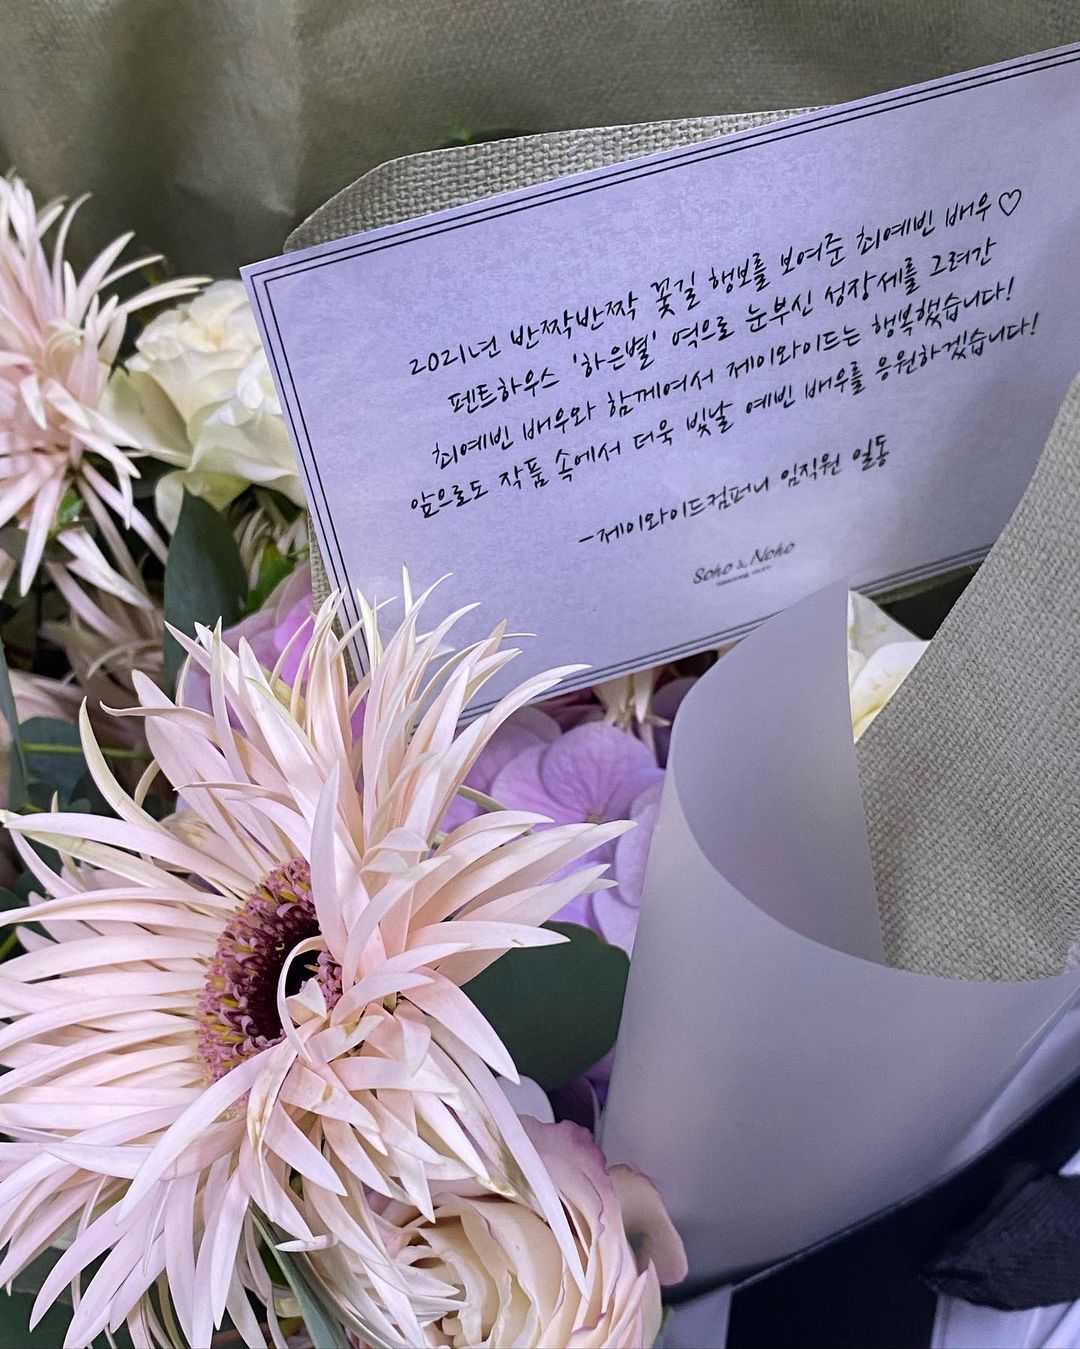 2021년 반짝반짝 꽃길 행보를 보여준 최예빈 배우♡
펜트하우스 '하은별' 역으로 눈부신 성장세를 그려간
최예빈 배우와 함께여서 제이와이드는 행복했습니다!
앞으로도 작품 속에서 더욱 빛날 예빈 배우를 응원하겠습니다!
-제이와이드컴퍼니 임직원 일동
Soho & Noho